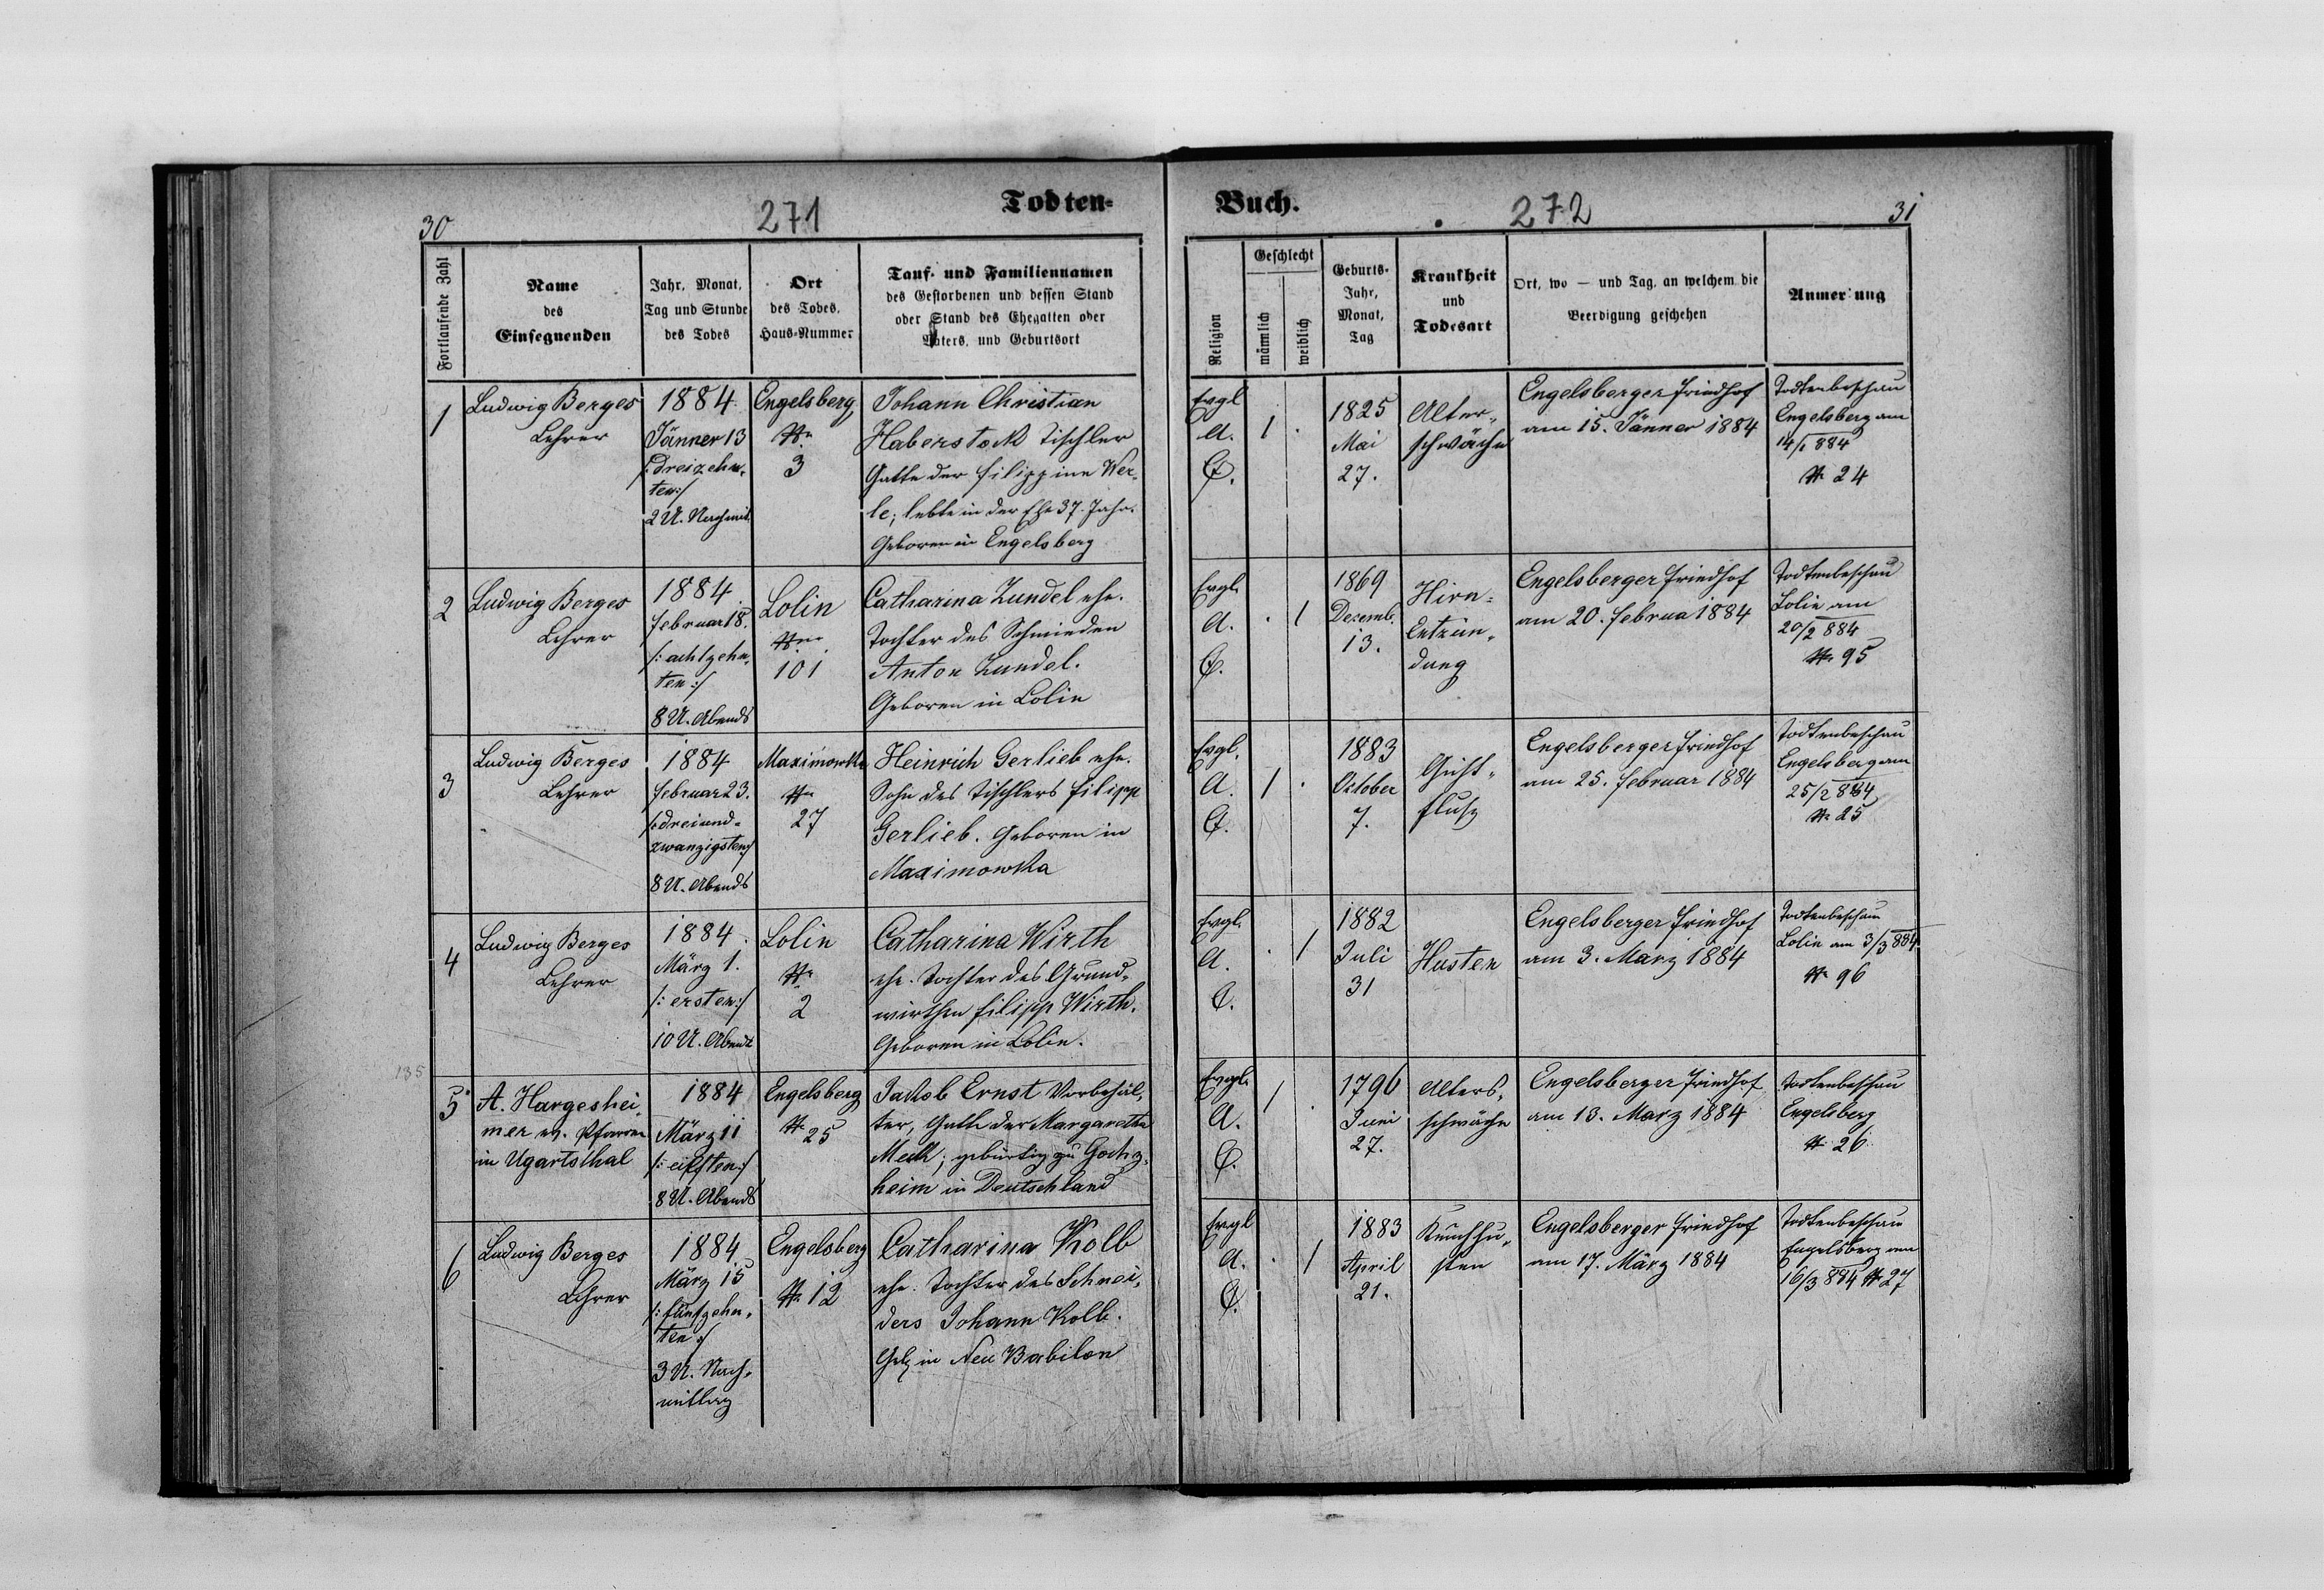 30
271
Todten-
Fortlaufende Zahl
Name
des
Einsegnenden
Jahr, Monat,
Tag und Stunde
des Todes
Ort
des Todes,
Haus-Nummer
Tauf- und Familiennamen
des Gestorbenen und dessen Stand
oder Stand des Ehegatten oder
Vaters, und Geburtsort
1
Ludwig Berges
Lehrer
1884
Jänner 13
/:dreizehn-
ten:/
2 U. Nachmit.
Engelsberg
Nr.
3
Johann Christian
Haberstock Tischler
Gatte der Filippine Wer-
le; lebte in der Ehe 37 Jahr.
Geboren in Engelsberg
2
Ludwig Berges
Lehrer
1884
Februar 18.
/:achtzehn-
ten:/
8 U. Abends
Lolin
Nr.
101
Catharina Zundel ehe.
Tochter des Schmieden
Anton Zundel.
Geboren in Lolin
3
Ludwig Berges
Lehrer
1884
Februar 23.
/:dreiund-
zwanzigsten:/
8 U. Abends
Maximowka
Nr.
27
Heinrich Gerlieb ehe.
Sohn des Tischlers Filipp
Gerlieb. Geboren in
Maximowka
4
Ludwig Berges
Lehrer
1884
März 1.
/:ersten:/
10 U. Abends
Lolin
Nr.
2
Catharina Wirth
ehe. Tochter des Grund-
wirthen Filipp Wirth.
Geboren in Lolin.
135
5
A. Hargeshei-
mer ev. Pfarrer
in Ugartsthal
1884
März 11
/:eilften:/
8 U. Abends
Engelsberg
Nr. 25
Jakob Ernst Vorbehäl-
ter, Gatte der Margaretha
Meck; gebürtig zu
heim in Deutschland
6
Ludwig Berges
Lehrer
1884
März 15
/:fünfzehn-
ten:/
3 U. Nach-
mittag
Engelsberg
Nr. 12
Catharina Kolb
ehe. Tochter des Schnei-
ders Johann Kolb.
Geb. in Neu Babilon
Buch.
272
31
Religion
Geschlecht
männlich
weiblich
Geburts-
Jahr,
Monat,
Tag
Krankheit
und
Todesart
Ort, wo — und Tag, an welchem die
Beerdigung geschehen
Anmer ung
Evgl
A.
C.
1
1825
Mai
27.
Alter-
schwäche
Engelsberger Friedhof
am 15. Jänner 1884
Todtenbeschau
Engelsberg am
14/1 884
Nr. 24
Evgl.
A.
C.
1
1869
Dezemb.
13.
Hirn-
Entzün-
dung
Engelsberger Friedhof
am 20. Februa 1884
Todtenbeschau
Lolin am
20/2 884
Nr. 95
Evgl.
A.
C.
1
1883
Oktober
7.
Gicht-
fluß
Engelsberger Friedhof
am 25. Februar 1884
Todtenbeschau
Engelsberg am
25/2 884
Nr. 25
Evgl.
A.
C.
1
1882
Juli
31
Husten
Engelsberger Friedhof
am 3. März 1884
Todtenbeschau
Lolin am 3/3 884
Nr. 96
Evgl.
A.
C.
1
1796
Juni
27.
Alters-
schwäche
Engelsberger Friedhof
am 13. März 1884
Todtenbeschau
Engelsberg
Nr. 26
Evgl
A.
C.
1
1883
April
21.
Keuchhu-
sten
Engelsberger Friedhof
am 17. März 1884
Todtenbeschau
Engelsberg am
16/3 884 Nr. 27